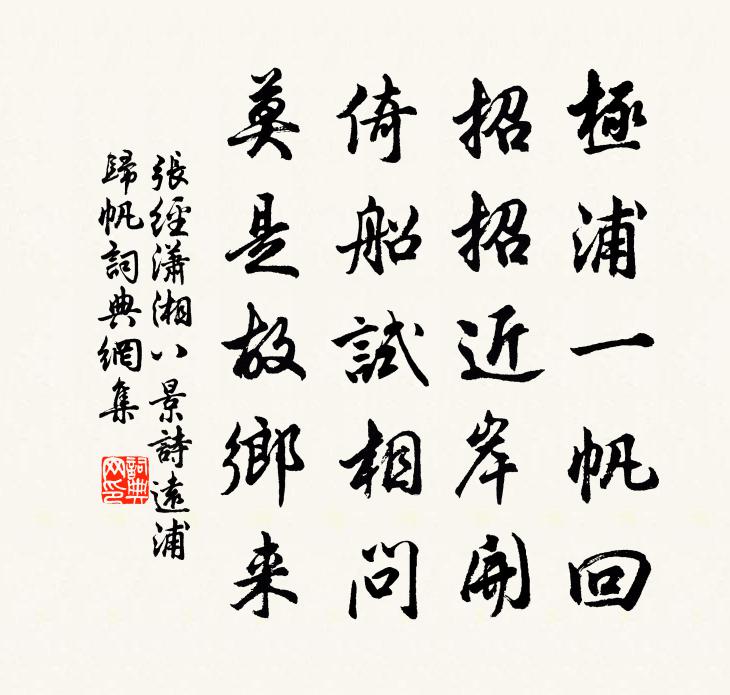 極浦一帆回
招招近岸開
倚船試相問
莫是故鄉来
張經瀟湘八景詩遠浦
歸帆詞典網集
詞典
网印